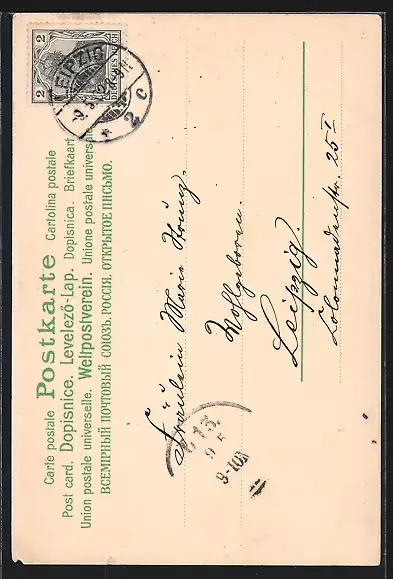 Carte postale Postkarte Cartolina postale
Post card. Dopisnice. Levelező-Lap. Dopisnica. Briefkaart
Union postale universelle. Weltpostverein. Unione postale universale
ВСЕМІРНЫЙ ПОЧТОВЫЙ СОЮЗЪ. РОССІЯ. ОТКРЫТОЕ ПИСЬМО.
2 2
DEUTSCHES REICH
LEIPZIG
2 c
Fräulein Marie König.
Wohlgeboren.
Leipzig.
Colonnadenstr. 25 I
13.
9 5
9-10N